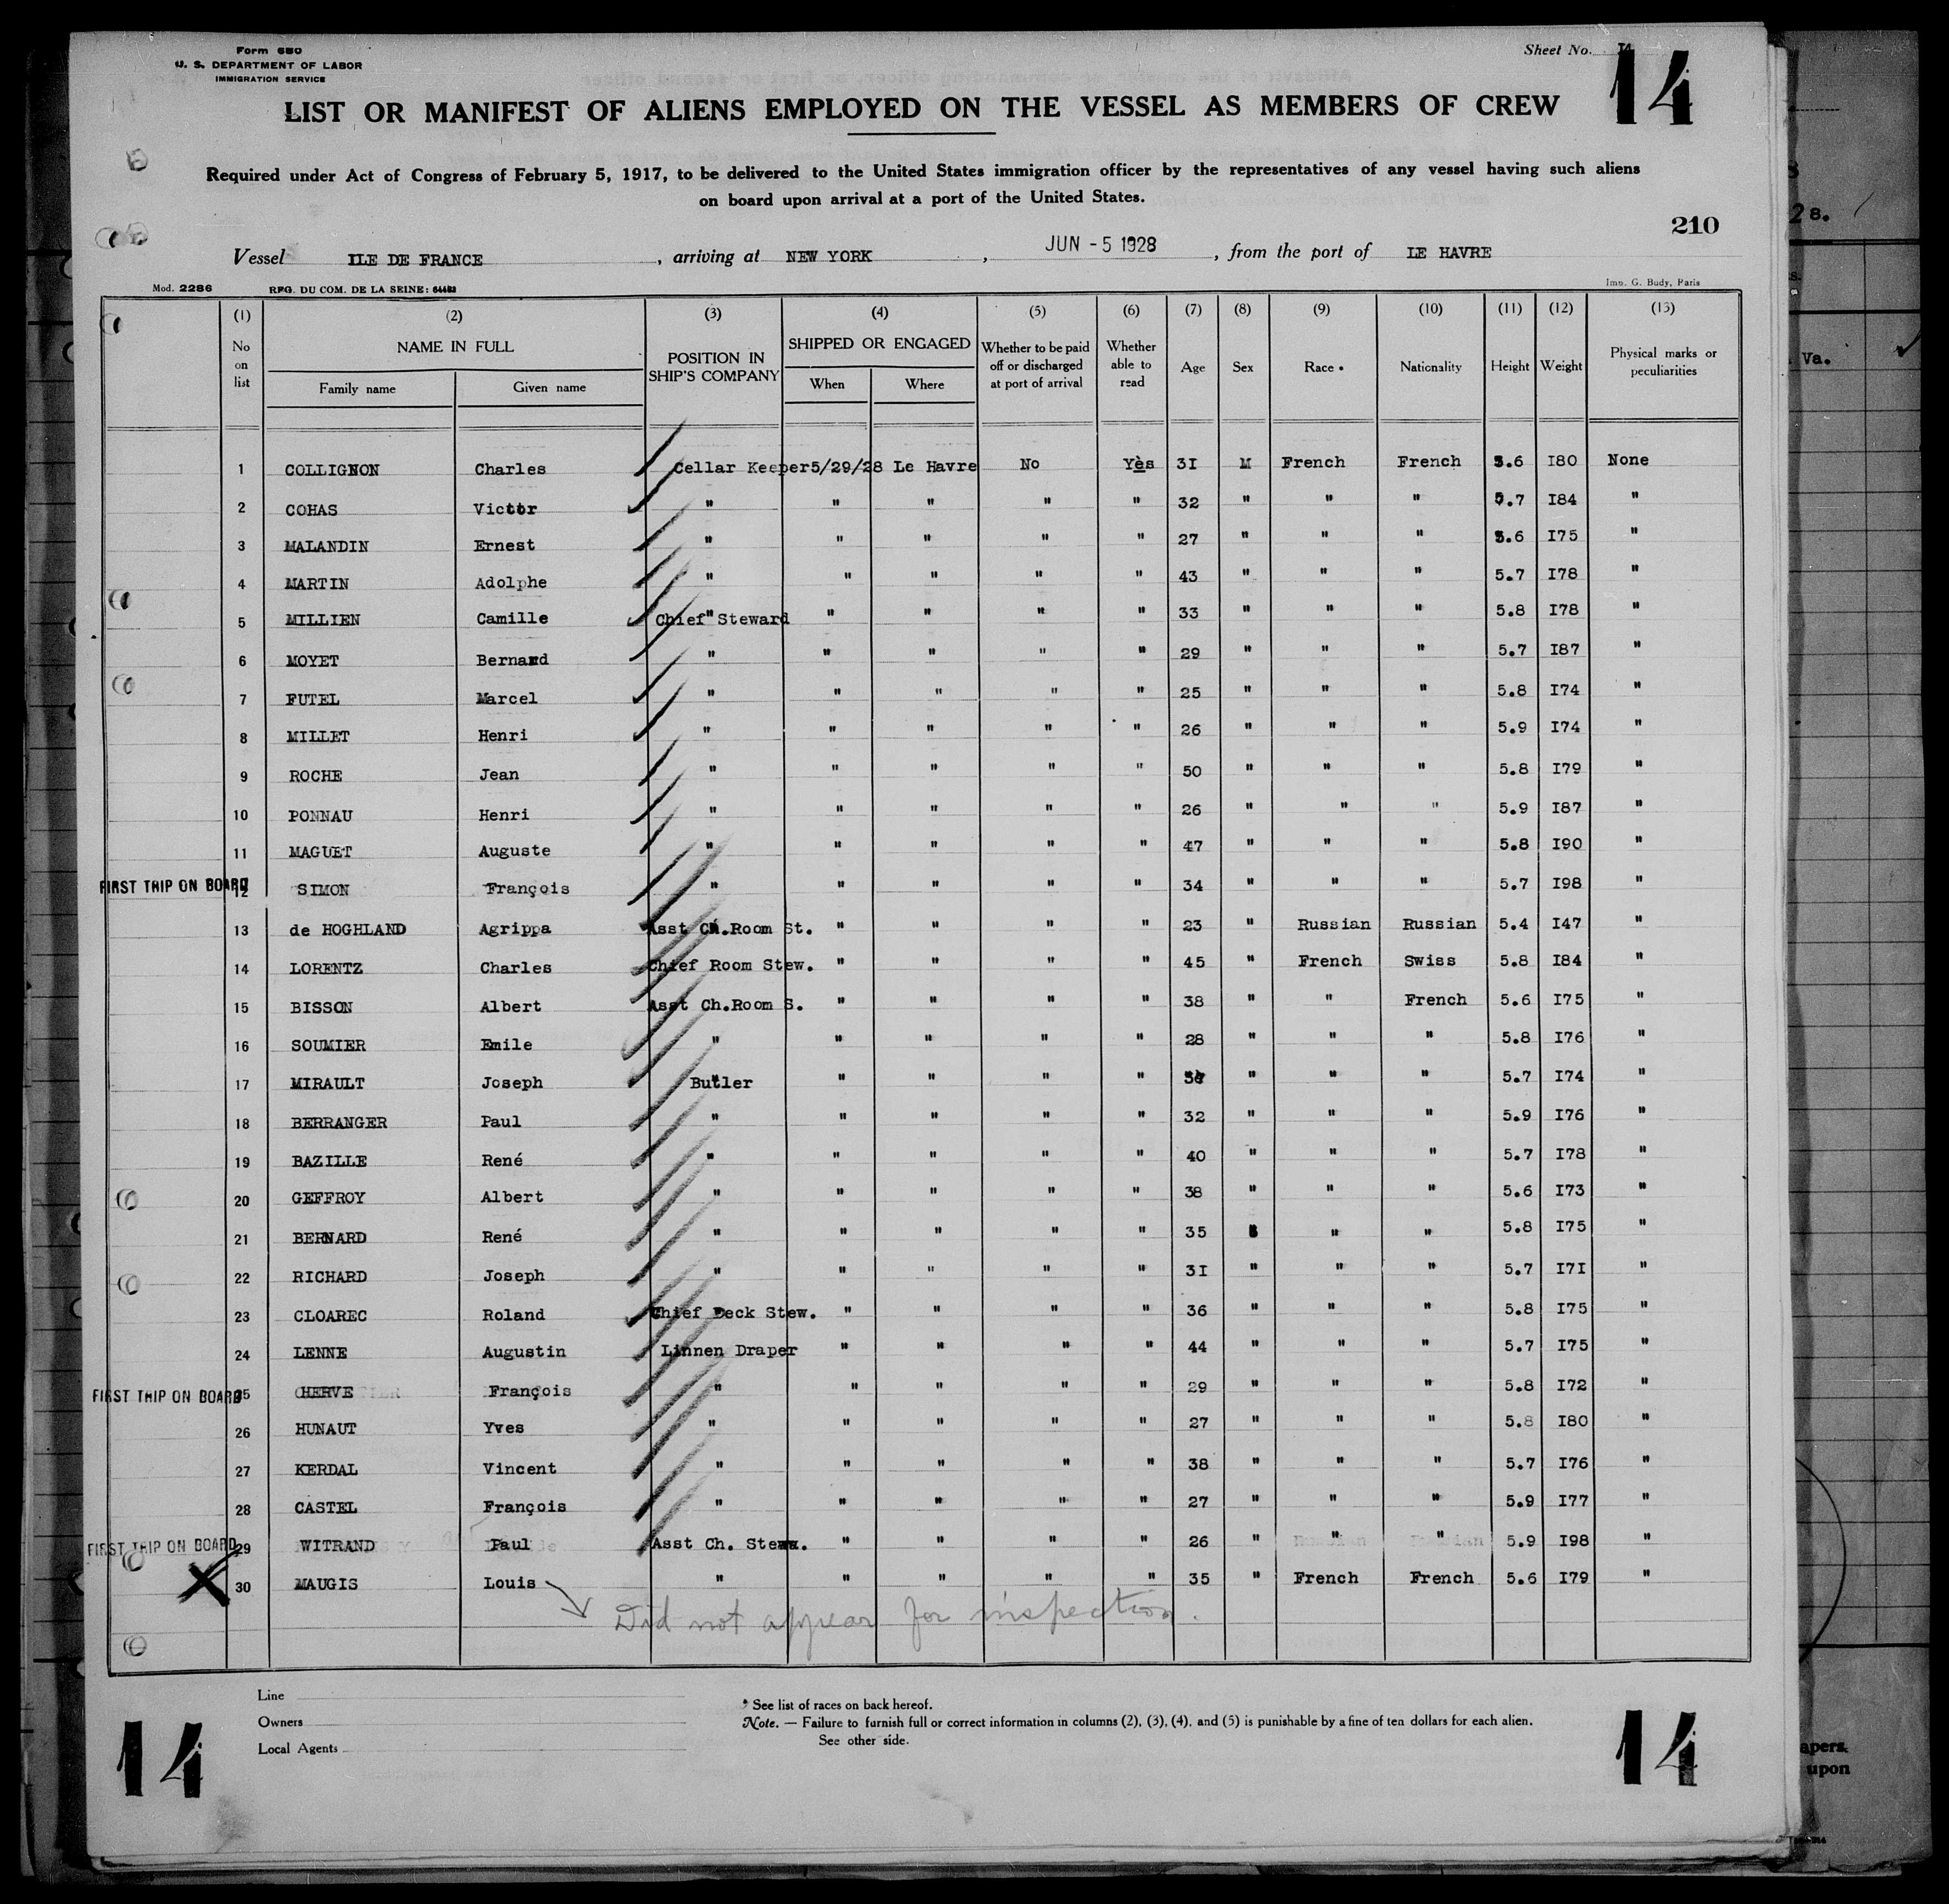 Form 680
U. S. DEPARTMENT OF LABOR
IMMIGRATION SERVICE
Sheet No. 14
14
LIST OR MANIFEST OF ALIENS EMPLOYED ON THE VESSEL AS MEMBERS OF CREW
Required under Act of Congress of February 5, 1917, to be delivered to the United States immigration officer by the representatives of any vessel having such aliens
on board upon arrival at a port of the United States.
210
Vessel ILE DE FRANCE , arriving at NEW YORK , JUN - 5 1928 , from the port of LE HAVRE
Mod. 2286 REG. DU COM. DE LA SEINE: Imp. G. Budy, Paris
(1) (2) (3) (4) (5) (6) (7) (8) (9) (10) (11) (12) (13)
No on list NAME IN FULL Family name Given name POSITION IN SHIP'S COMPANY SHIPPED OR ENGAGED When Where Whether to be paid off or discharged at port of arrival Whether able to read Age Sex Race * Nationality Height Weight Physical marks or peculiarities
1 COLLIGNON Charles Cellar Keeper 5/29/28 Le Havre No Yès 3I M French French 5.6 I80 None
2 COHAS Victor " " " " " 32 " " " 5.7 I84 "
3 MALANDIN Ernest " " " " " 27 " " " 5.6 I75 "
4 MARTIN Adolphe " " " " " 43 " " " 5.7 I78 "
5 MILLIEN Camille Chief " Steward " " " " 33 " " " 5.8 I78 "
6 MOYET Bernard " " " " " 29 " " " 5.7 I87 "
7 FUTEL Marcel " " " " " 25 " " " 5.8 I74 "
8 MILLET Henri " " " " " 26 " " " 5.9 I74 "
9 ROCHE Jean " " " " " 50 " " " 5.8 I79 "
10 PONNAU Henri " " " " " 26 " " " 5.9 I87 "
11 MAGUET Auguste " " " " " 47 " " " 5.8 I90 "
FIRST TRIP ON BOARD 12 SIMON François " " " " " 34 " " " 5.7 I98 "
13 de HOGHLAND Agrippa Asst Ch.Room St. " " " " 23 " Russian Russian 5.4 I47 "
14 LORENTZ Charles Chief Room Stew. " " " " 45 " French Swiss 5.8 I84 "
15 BISSON Albert Asst Ch.Room S. " " " " 38 " " French 5.6 I75 "
16 SOUMIER Emile " " " " " 28 " " " 5.8 I76 "
17 MIRAULT Joseph Butler " " " " " " " 5.7 I74 "
18 BERRANGER Paul " " " " " 32 " " " 5.9 I76 "
19 BAZILLE René " " " " " 40 " " " 5.7 I78 "
20 GEFFROY Albert " " " " " 38 " " " 5.6 I73 "
21 BERNARD René " " " " " 35 " " 5.8 I75 "
22 RICHARD Joseph " " " " " 3I " " " 5.7 I7I "
23 CLOAREC Roland Chief Deck Stew. " " " " 36 " " " 5.8 I75 "
24 LENNE Augustin Linnen Draper " " " " 44 " " " 5.7 I75 "
FIRST TRIP ON BOARD 25 HERVE François " " " " " 29 " " " 5.8 I72 "
26 HUNAUT Yves " " " " " 27 " " " 5.8 I80 "
27 KERDAL Vincent " " " " " 38 " " " 5.7 I76 "
28 CASTEL François " " " " " 27 " " " 5.9 I77 "
FIRST TRIP ON BOARD 29 WITRAND Paul Asst Ch. Stew. " " " " 26 " " " 5.9 I98 "
30 MAUGIS Louis " " " " " 35 " French French 5.6 I79 "
Did not appear for inspection.
Line
Owners
Local Agents
* See list of races on back hereof.
Note. — Failure to furnish full or correct information in columns (2), (3), (4), and (5) is punishable by a fine of ten dollars for each alien.
See other side.
14
14
28.
Va.
apers.
upon